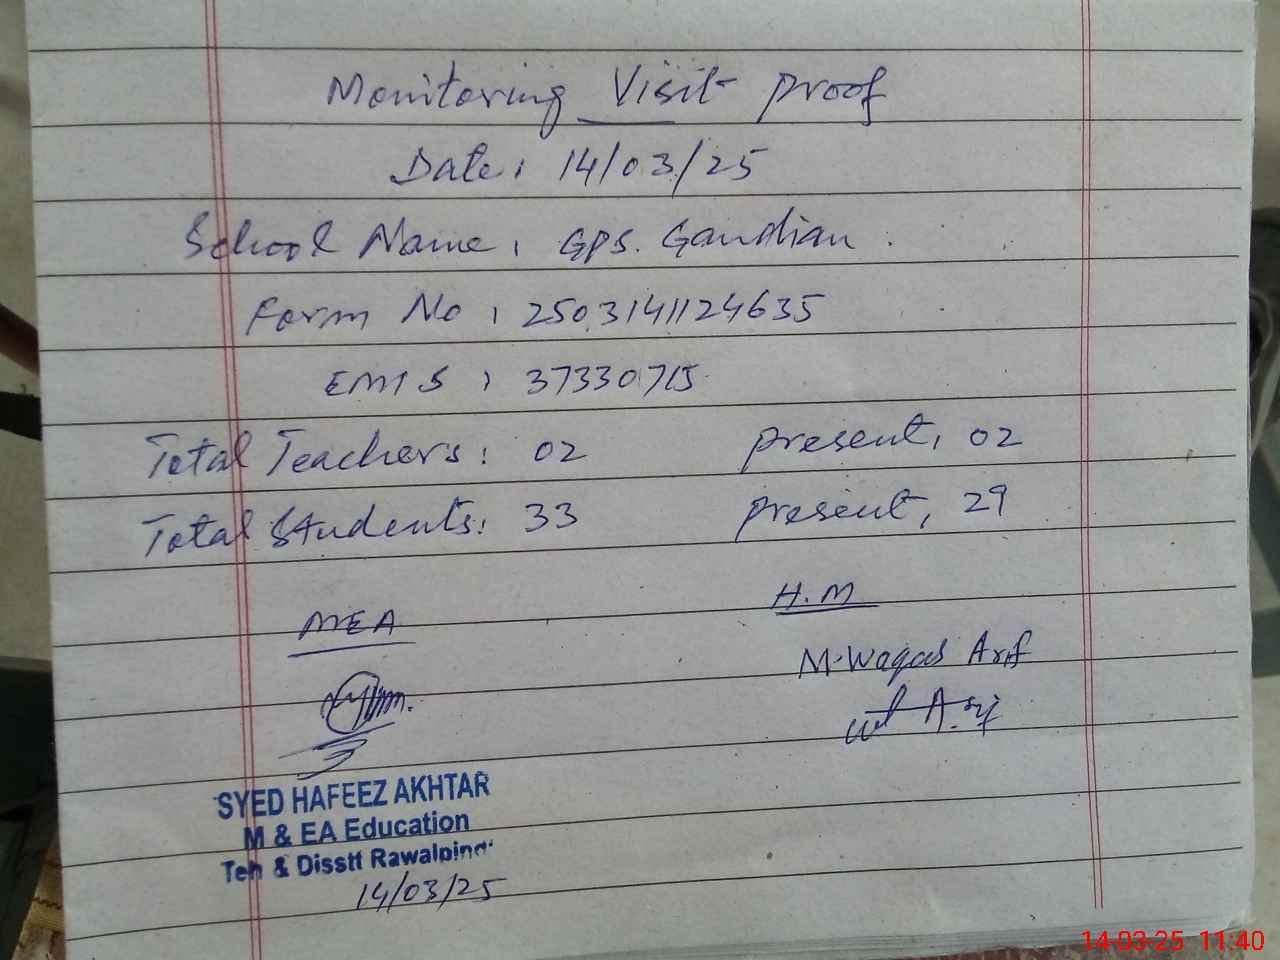 Monitoring Visit proof
Date: 14/03/25
School Name: GPS. Gandian
Form No: 2503141124635
EMIS: 37330715
Total Teachers: 02 present, 02
Total Students: 33 present, 29
MEA H.M
M. Waqas Arif
SYED HAFEEZ AKHTAR
M & EA Education
Teh & Disstt Rawalpindi
14/03/25
14-03-25 11:40